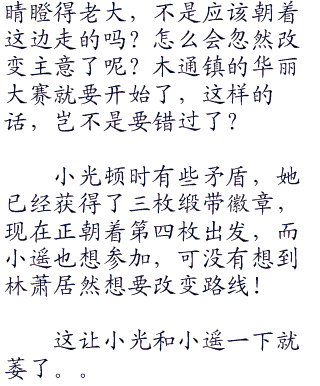 睛瞪得老大，不是应该朝着
这边走的吗？怎么会忽然改
变主意了呢？木通镇的华丽
大赛就要开始了，这样的
话，岂不是要错过了？
小光顿时有些矛盾，她
已经获得了三枚缎带徽章，
现在正朝着第四枚出发，而
小遥也想参加，可没有想到
林萧居然想要改变路线！
这让小光和小遥一下就
萎了。。